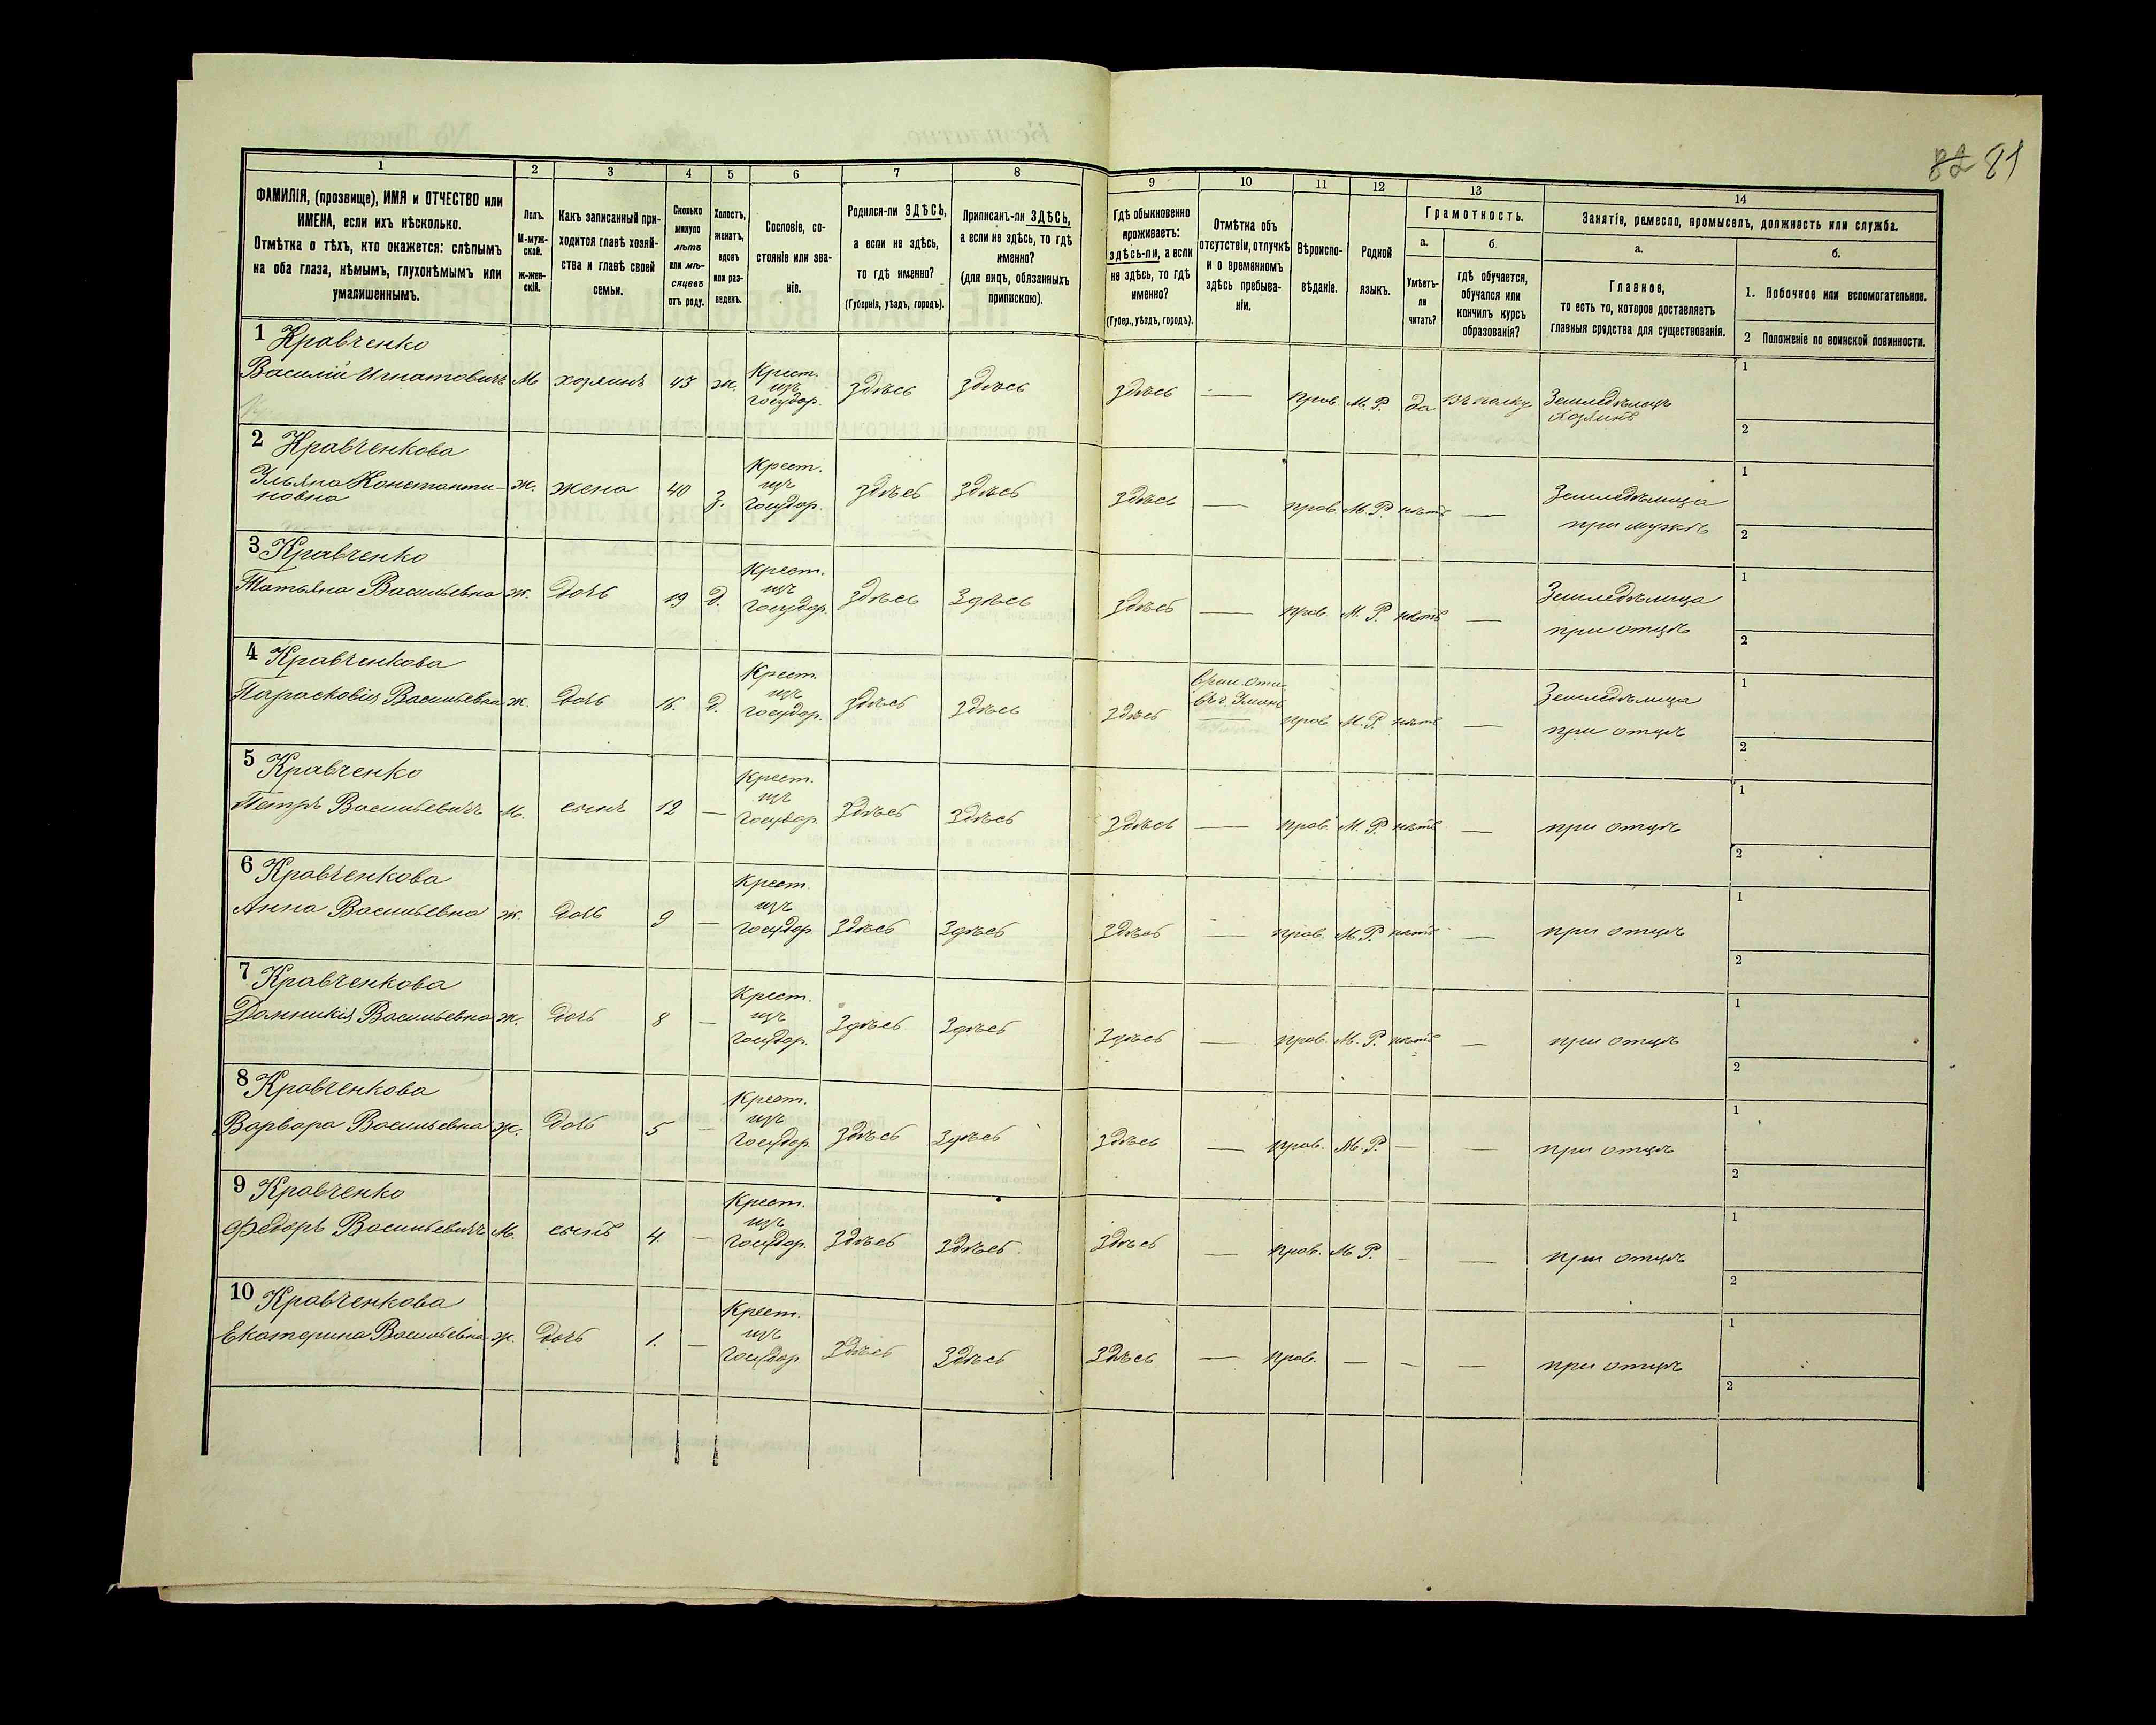 82 81
1 2 3 4 5 6 7 8 9 10 11 12 13 14
ФАМИЛІЯ, (прозвище), ИМЯ и ОТЧЕСТВО или
ИМЕНА, если ихъ нѣсколько.
Отмѣтка о тѣхъ, кто окажется: слѣпымъ
на оба глаза, нѣмымъ, глухонѣмымъ или
умалишеннымъ.
Полъ.
М-муж-
ской.
Ж-жен-
скій.
Какъ записанный при-
ходится главѣ хозяй-
ства и главѣ своей
семьи.
Сколько
минуло
лѣтъ
или мѣ-
сяцевъ
отъ роду.
Холостъ,
женатъ,
вдовъ
или раз-
веденъ.
Сословіе, со-
стояніе или зва-
ніе.
Родился-ли ЗДѢСЬ,
а если не здѣсь,
то гдѣ именно?
(Губернія, уѣздъ, городъ).
Приписанъ-ли ЗДѢСЬ,
а если не здѣсь, то гдѣ
именно?
(для лицъ, обязанныхъ
припискою).
Гдѣ обыкновенно
проживаетъ:
здѣсь-ли, а если
не здѣсь, то гдѣ
именно?
(Губер., уѣздъ, городъ).
Отмѣтка объ
отсутствіи, отлучкѣ
и о временномъ
здѣсь пребыва-
ніи.
Вѣроиспо-
вѣданіе.
Родной
языкъ.
Грамотность.
а.
Умѣетъ-
ли
читать?
б.
гдѣ обучается,
обучался или
кончилъ курсъ
образованія?
Занятіе, ремесло, промыселъ, должность или служба.
а.
Главное,
то есть то, которое доставляетъ
главныя средства для существованія.
б.
1. Побочное или вспомогательное.
2 Положеніе по воинской повинности.
1 Кравченко
Василій Игнатовичъ М хозяинъ 43 ж. Крест. изъ государ. здѣсь здѣсь здѣсь — прав. М. Р. да въ полку Земледѣлецъ хозяинъ
1
2
2 Кравченкова
Ульяна Константи-
новна ж. жена 40 з. Крест. изъ государ. здѣсь здѣсь здѣсь — прав. М. Р. нѣтъ — Земледѣлица при мужѣ
1
2
3 Кравченко
Татьяна Васильевна ж. дочь 19 д. Крест. изъ государ. здѣсь здѣсь здѣсь — прав. М. Р. нѣтъ — Земледѣлица при отцѣ
1
2
4 Кравченкова
Парасковія Васильевна ж. дочь 16. д. Крест. изъ государ. здѣсь здѣсь здѣсь въ г. Умань — прав. М. Р. нѣтъ — Земледѣлица при отцѣ
1
2
5 Кравченко
Петръ Васильевичъ М. сынъ 12 — Крест. изъ государ. здѣсь здѣсь здѣсь — прав. М. Р. нѣтъ — при отцѣ
1
2
6 Кравченкова
Анна Васильевна ж. дочь 9 — Крест. изъ государ. здѣсь здѣсь здѣсь — прав. М. Р. нѣтъ — при отцѣ
1
2
7 Кравченкова
Домникія Васильевна ж. дочь 8 — Крест. изъ государ. здѣсь здѣсь здѣсь — прав. М. Р. нѣтъ — при отцѣ
1
2
8 Кравченкова
Варвара Васильевна ж. дочь 5 — Крест. изъ государ. здѣсь здѣсь здѣсь — прав. М. Р. — — при отцѣ
1
2
9 Кравченко
Федоръ Васильевичъ М. сынъ 4. — Крест. изъ государ. здѣсь здѣсь здѣсь — прав. М. Р. — — при отцѣ
1
2
10 Кравченкова
Екатерина Васильевна ж. дочь 1. — Крест. изъ государ. здѣсь здѣсь здѣсь — прав. — — — при отцѣ
1
2